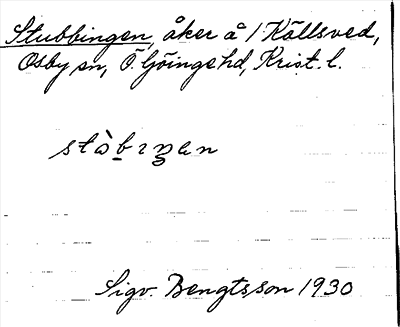 Stubbingen, åker å 1 Källsved,
Osby sn, Ö. Göinge hd, Krist. l.
Sigv. Bengtsson 1930